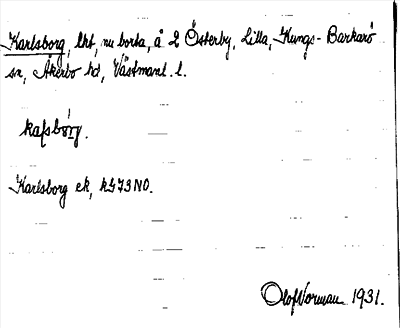 Karlsborg, lht, nu borta, å 2 Österby, Lilla, Kungs-Barkarö
sn, Åkerbo hd, Västmanl. l.
kaɭsbórj.
Karlsborg ek, k473NO.
Olof Norman 1931.